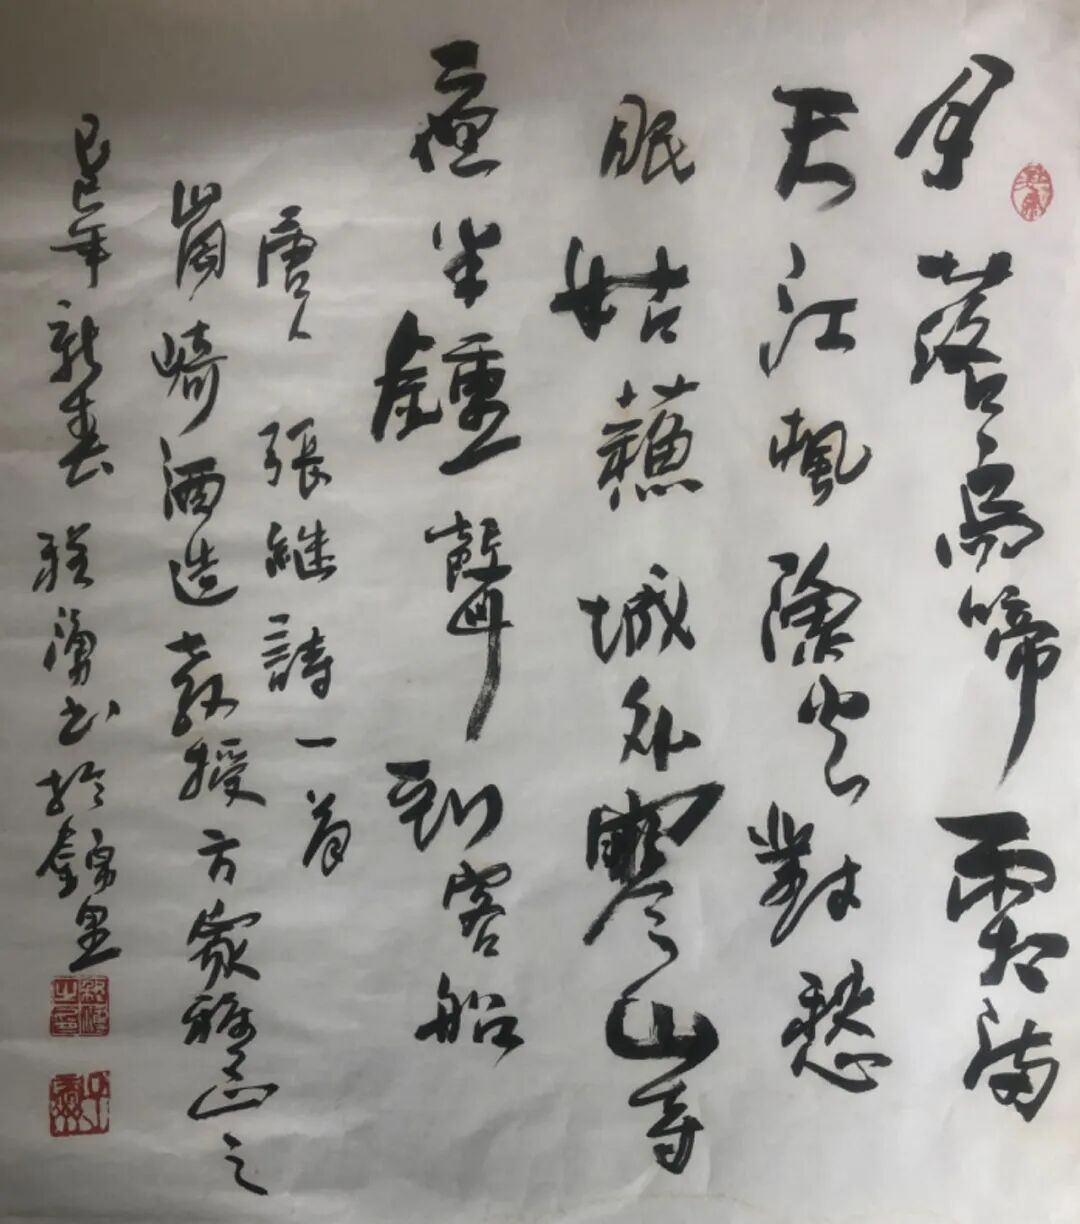 月落烏啼霜滿
天江楓漁火對愁
眠姑蘇城外寒山寺
夜半鍾聲到客船
唐人張繼詩一首
崗崎酒造教授方家雅正之
己巳年新春程湧书於錦里